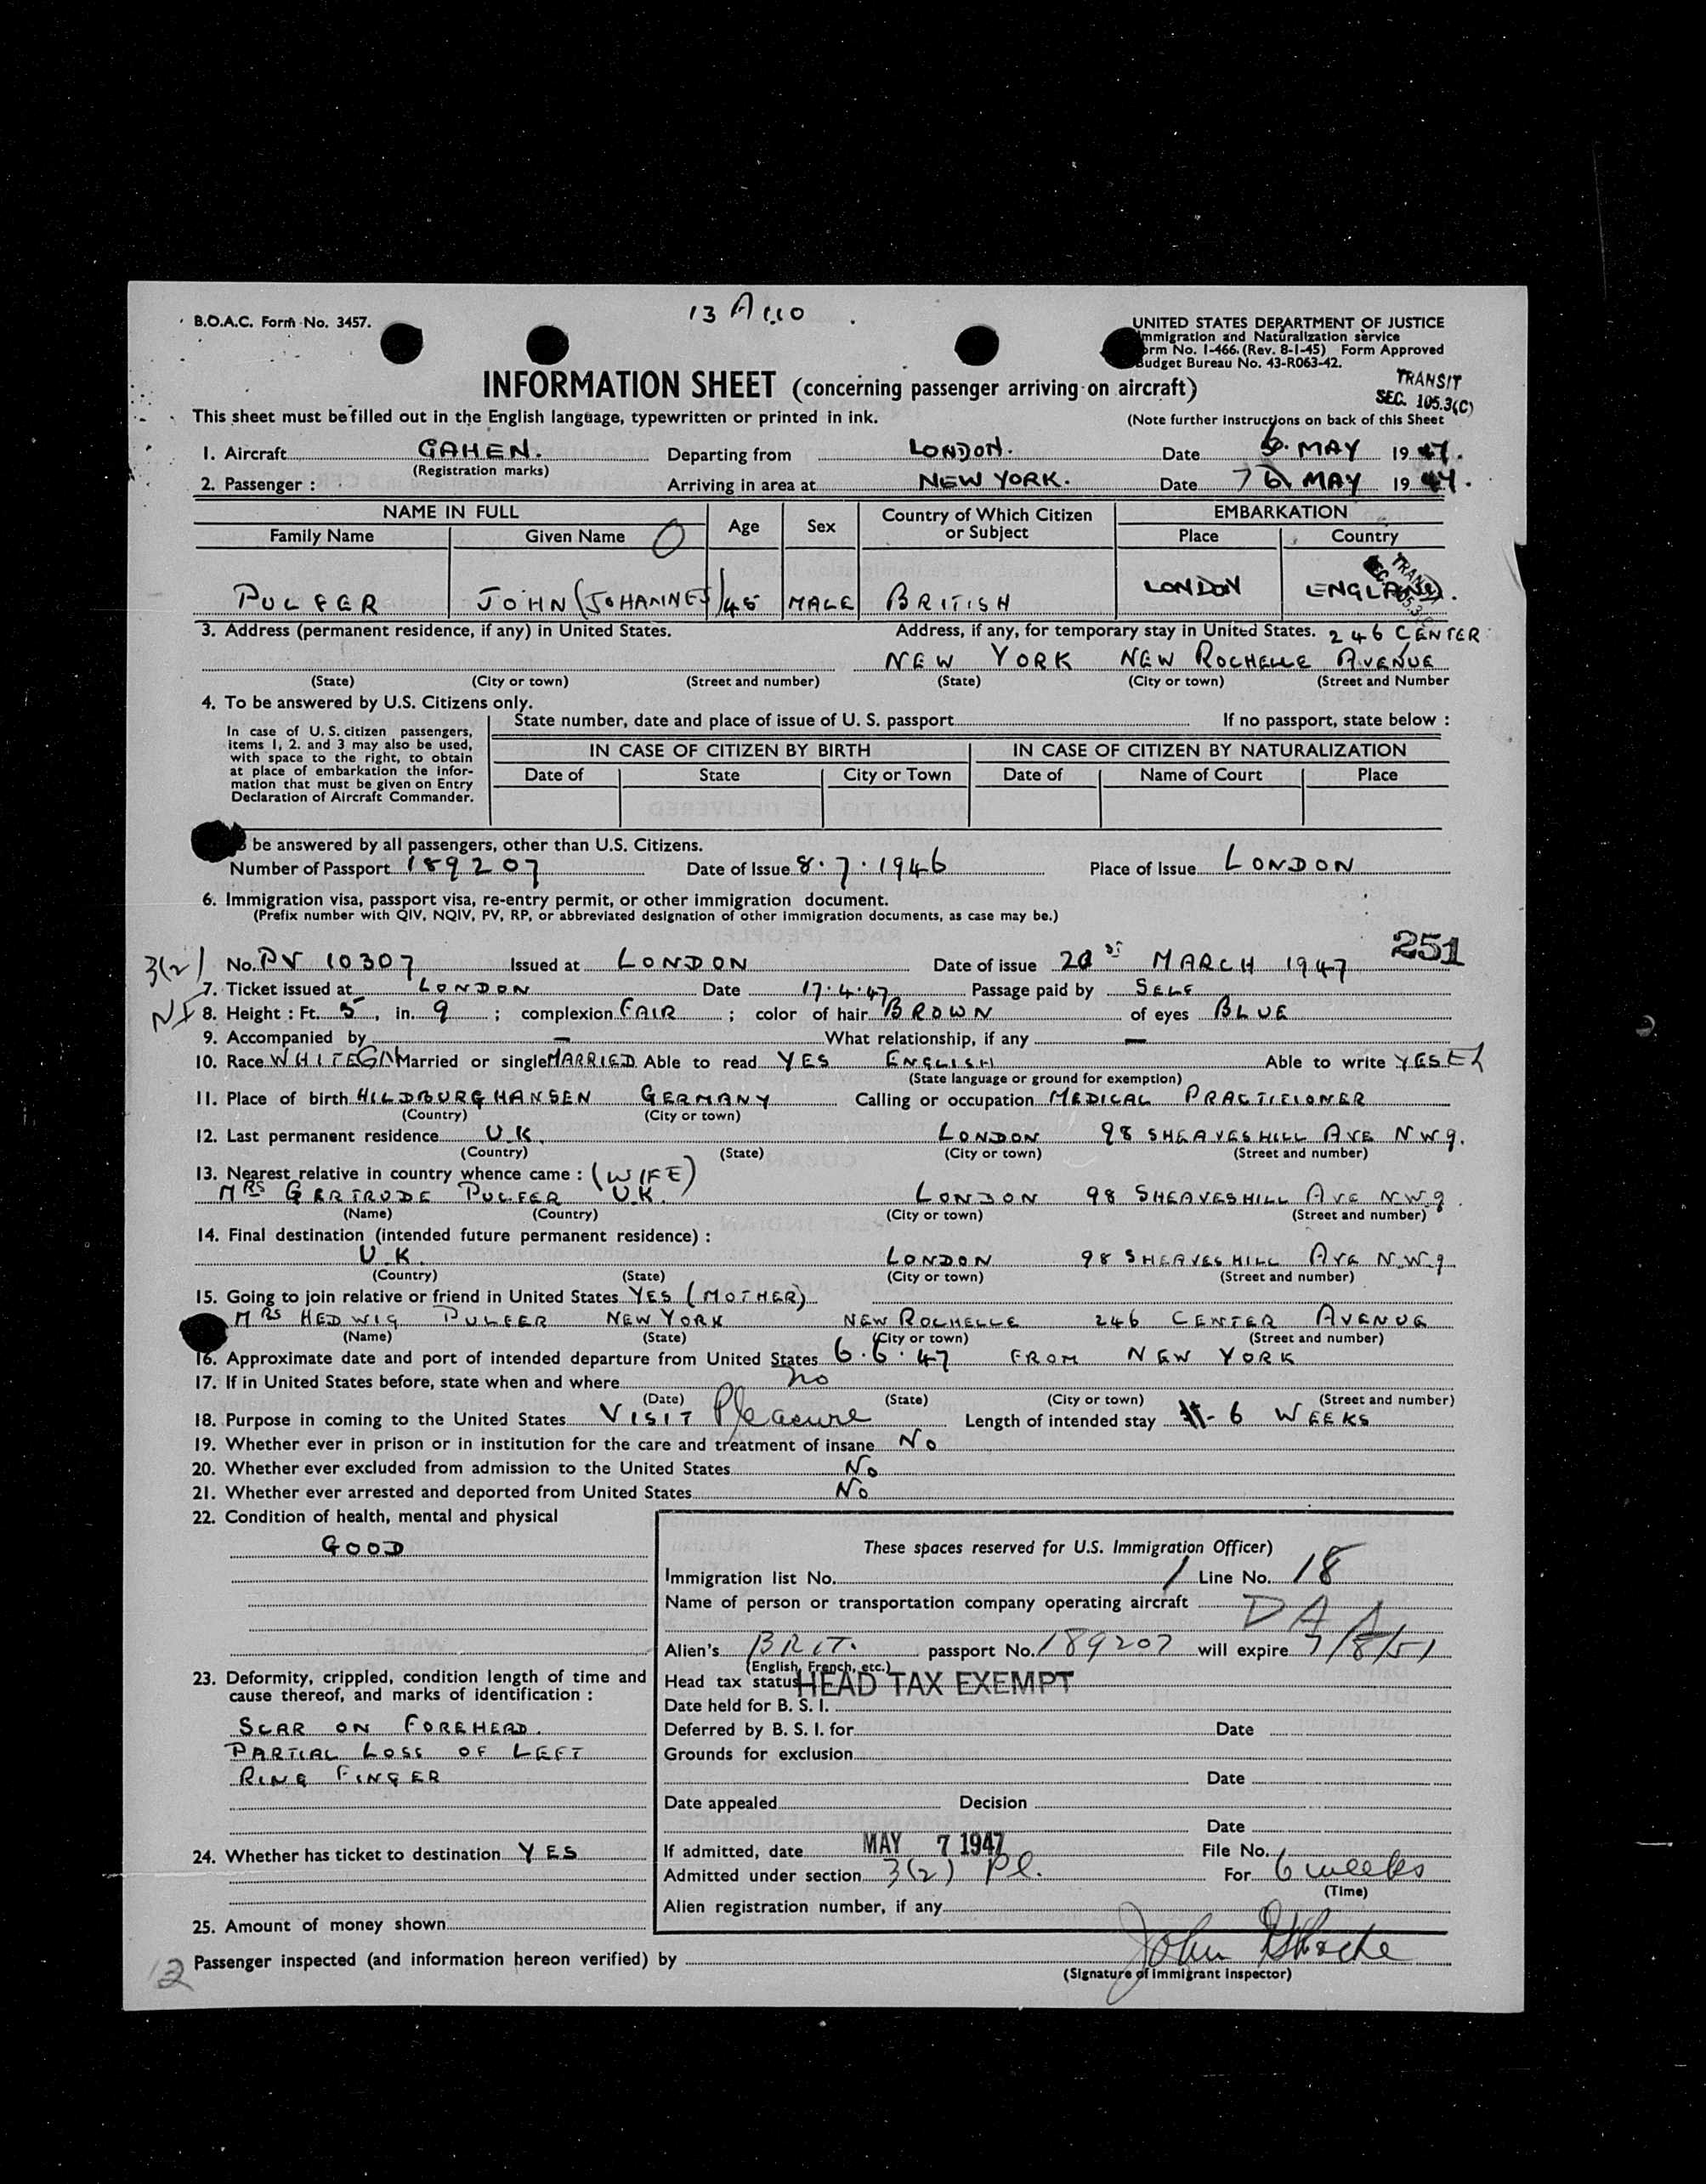 13 A 1.10
B.O.A.C. Form No. 3457.
UNITED STATES DEPARTMENT OF JUSTICE
Immigration and Naturalization service
Form No. I-466. (Rev. 8-1-45) Form Approved
Budget Bureau No. 43-R063-42.
INFORMATION SHEET (concerning passenger arriving on aircraft)
TRANSIT
SEC. 105.3(C)
This sheet must be filled out in the English language, typewritten or printed in ink.
(Note further instructions on back of this Sheet
1. Aircraft GAHEN. Departing from LONDON. Date 6. MAY 1947.
(Registration marks)
2. Passenger : Arriving in area at NEW YORK. Date 7 MAY 1947.
NAME IN FULL Age Sex Country of Which Citizen or Subject EMBARKATION
Family Name Given Name Place Country
TRANSIT
PULFER JOHN (JOHANNES) 45 MALE BRITISH LONDON ENGLAND.
3. Address (permanent residence, if any) in United States. Address, if any, for temporary stay in United States. 246 CENTER
NEW YORK NEW ROCHELLE AVENUE
(State) (City or town) (Street and number) (State) (City or town) (Street and Number
4. To be answered by U.S. Citizens only.
State number, date and place of issue of U. S. passport If no passport, state below :
In case of U. S. citizen passengers,
items 1, 2. and 3 may also be used,
with space to the right, to obtain
at place of embarkation the infor-
mation that must be given on Entry
Declaration of Aircraft Commander.
IN CASE OF CITIZEN BY BIRTH IN CASE OF CITIZEN BY NATURALIZATION
Date of State City or Town Date of Name of Court Place
be answered by all passengers, other than U.S. Citizens.
Number of Passport 189207 Date of Issue 8.7.1946 Place of Issue LONDON
6. Immigration visa, passport visa, re-entry permit, or other immigration document.
(Prefix number with QIV, NQIV, PV, RP, or abbreviated designation of other immigration documents, as case may be.)
251
3(2) No. PV 10307 Issued at LONDON Date of issue MARCH 1947
7. Ticket issued at LONDON Date 17.4.47 Passage paid by SELF
NI 8. Height : Ft. 5, in. 9 ; complexion FAIR ; color of hair BROWN of eyes BLUE
9. Accompanied by — What relationship, if any —
10. Race WHITE Married or single MARRIED Able to read YES ENGLISH Able to write YES
(State language or ground for exemption)
11. Place of birth HILDBURGHANSEN GERMANY Calling or occupation MEDICAL PRACTITIONER
(Country) (City or town)
12. Last permanent residence U.K. LONDON 98 SHEAVESHILL AVE NW9.
(Country) (State) (City or town) (Street and number)
13. Nearest relative in country whence came : (WIFE)
MRS GERTRUDE PULFER U.K. LONDON 98 SHEAVESHILL AVE NW9.
(Name) (Country) (City or town) (Street and number)
14. Final destination (intended future permanent residence) :
U.K. LONDON 98 SHEAVESHILL AVE N.W.9.
(Country) (State) (City or town) (Street and number)
15. Going to join relative or friend in United States YES (MOTHER)
MRS HEDWIG PULFER NEW YORK NEW ROCHELLE 246 CENTER AVENUE
(Name) (State) (City or town) (Street and number)
16. Approximate date and port of intended departure from United States 6.6.47 FROM NEW YORK
17. If in United States before, state when and where no
(Date) (State) (City or town) (Street and number)
18. Purpose in coming to the United States VISIT Pleasure Length of intended stay 6 WEEKS
19. Whether ever in prison or in institution for the care and treatment of insane No
20. Whether ever excluded from admission to the United States No
21. Whether ever arrested and deported from United States No
22. Condition of health, mental and physical
GOOD
These spaces reserved for U.S. Immigration Officer)
Immigration list No. 1 Line No. 18
Name of person or transportation company operating aircraft
Alien's BRIT. passport No. 189207 will expire 7/8/51
(English, French, etc.)
23. Deformity, crippled, condition length of time and
cause thereof, and marks of identification :
SCAR ON FOREHEAD.
PARTIAL LOSS OF LEFT
RING FINGER
Head tax status HEAD TAX EXEMPT
Date held for B. S. I.
Deferred by B. S. I. for Date
Grounds for exclusion
Date
Date appealed Decision
Date
24. Whether has ticket to destination YES
If admitted, date MAY 7 1947 File No.
Admitted under section 3(2) Pl. For 6 weeks
(Time)
Alien registration number, if any
25. Amount of money shown
12 Passenger inspected (and information hereon verified) by John
(Signature of Immigrant Inspector)